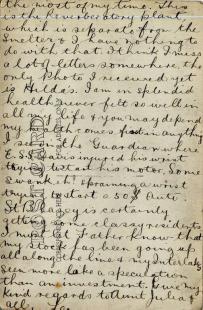 the most of my time. This
is the reverberatory plant
which is separate from the
smelter & I have nothing to
do with that. I think I miss
a lot of letters somewhere, the
only photo I received yet
is Hilda's. I am in splendid
health, never felt so well in
all my life & you may depend
my health comes first in anything
I seen the Guardian where
E.S. injured his wrist
trying to start his motor, Some
swank, eh! spraining a wrist
trying to start a 50¢ auto
St B Lacy is certainly
getting some classy residents
I must let Father know that
my stock has been going up
all along the line & my Interlake
seem more like a speculation
than an investment. Give my
kind regards to Aunt Julia &
all. Leo